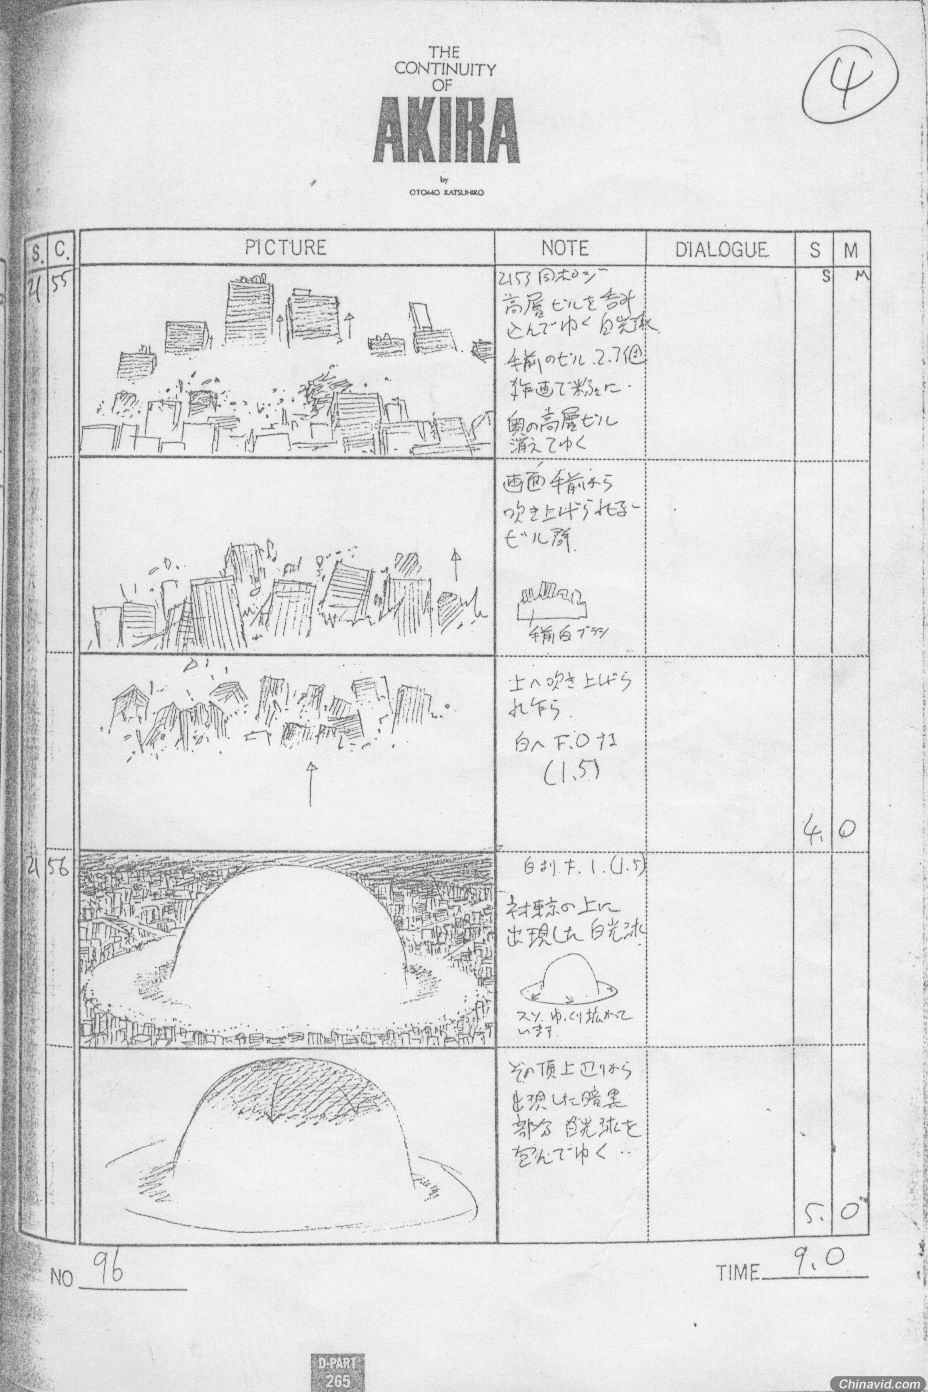 THE
CONTINUITY
OF
AKIRA
by
OTOMO KATSUHIRO
4
S. C. PICTURE NOTE DIALOGUE S M
S M
21 55
2153 同ポジ
高層ビルを呑み
込んでゆく白光球
手前のビル 2.3個
作画で粉々に‥
奥の高層ビル
消えてゆく
画面手前から
吹き上げられる
ビル群
手前白ブラシ
上へ吹き上げら
れ乍ら
白へ F.O する
(1.5)
4. 0
21 56
白より F.I.(1.5)
ネオ東京の上に
出現した白光球
スソ、ゆっくり拡がって
います
その頂上辺りから
出現した暗黒
部分 白光球を
包んでゆく‥
5. 0
NO 96
TIME 9.0
D-PART
265
Chinavid.com